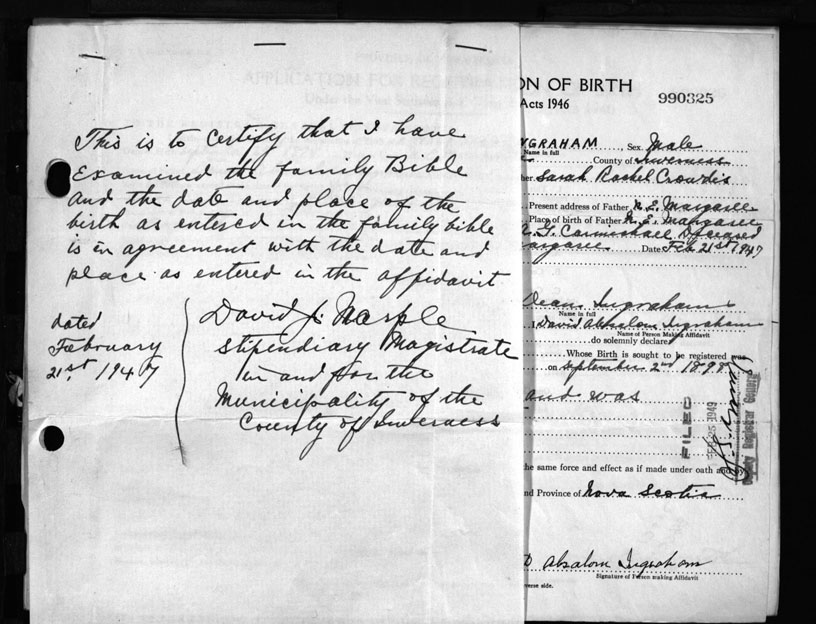 This is to certify that I have
Examined the family Bible
and the date and place of the
birth as entered in the family bible
is in agreement with the date and
place as entered in the affidavit
dated
February
21st, 1947
David J.
Stipendiary Magistrate
in and for the
Municipality of the
County of Inverness
ON OF BIRTH
Acts 1946
990325
NGRAHAM, Sex. Male
Name in full
County of Inverness
her Sarah Rachel Crowdis
Present address of Father N. E. Margaree
Place of birth of Father N. E. Margaree
Carmichael Deceased
argaree Date Feb 21st 1947
Dean Ingraham
Name in full
I David Absalom Ingraham
Name of Person Making Affidavit
do solemnly declare
Whose Birth is sought to be registered was
on September 2nd 1898
and was
FILED
1949
Deputy Registrar General
the same force and effect as if made under oath and by
nd Province of Nova Scotia
D Absalom Ingraham
Signature of Person making Affidavit
verse side.